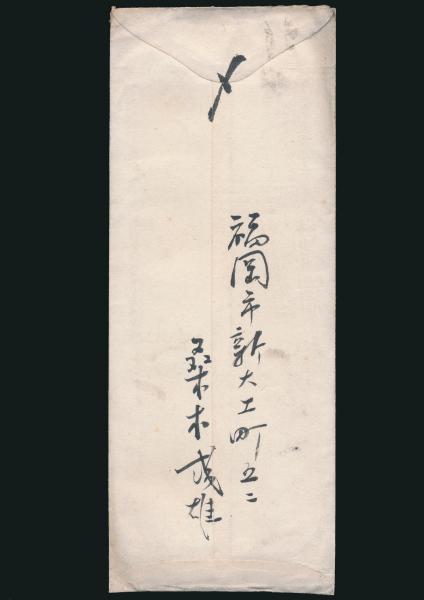 〆
福岡市新大工町五二
桑木 彧雄